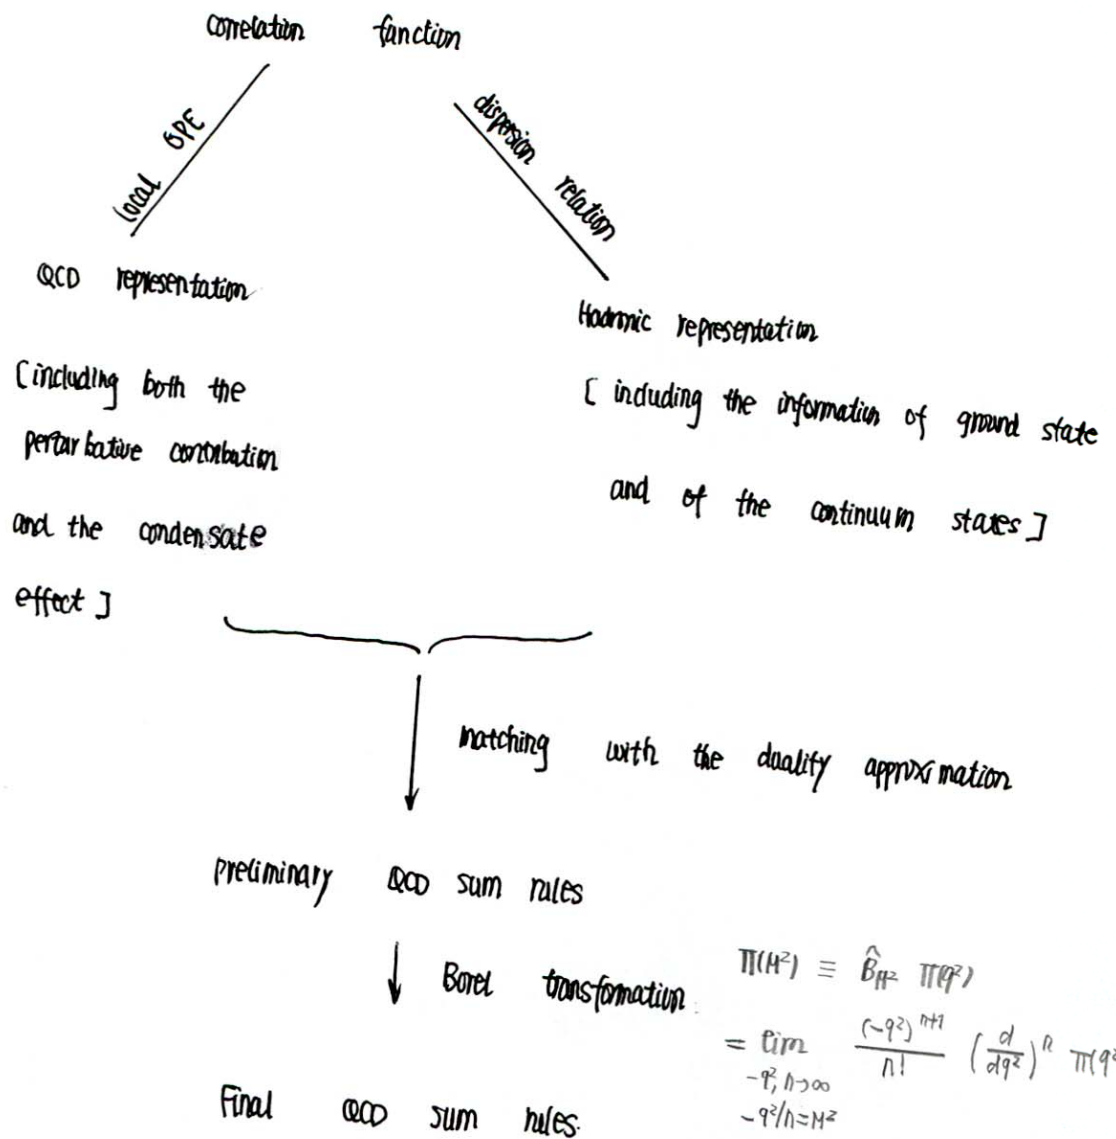 correlation fanction
local OPE
dispersion relation
QCD representation
Hadronic representation
[including both the
perturbative contribution
and the condensate
effect]
[including the information of ground state
and of the continuum states]
matching with the duality approximation
preliminary QCD sum rules
Borel transformation
Π(M²) ≡ B̂_M² Π(q²)
= lim (-q²)ⁿ⁺¹/n! (d/dq²)ⁿ Π(q²
-q², n→∞
-q²/n=M²
Final QCD sum rules.